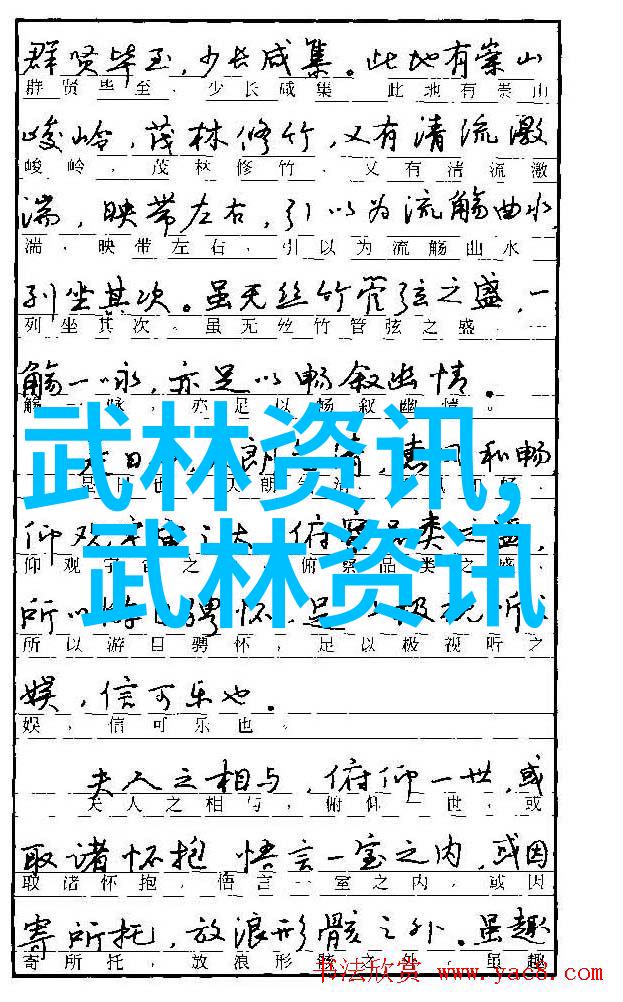 群贤毕至,少长咸集。此地有崇山
群贤毕至,少长咸集。此地有崇山
峻岭,茂林修竹,又有清流激
峻岭,茂林修竹,又有清流激
湍,映带左右,引以为流觞曲水,
湍,映带左右,引以为流觞曲水
列坐其次。虽无丝竹管弦之盛,一
列坐其次。虽无丝竹管弦之盛,一
觞一咏,亦足以畅叙幽情。
觞一咏,亦足以畅叙幽情。
是日 朗 清,惠 和畅
武林资讯,
是日也,天朗
仰观宇 之大,俯察品类之盛,
武林资讯
仰观宇 之 ,俯察品类之盛,
所以游目骋怀,足 极视听
所以游目骋怀,足以极视听之
娱,信可乐也。
娱,信可乐也。
夫人之相与,俯仰一世,或
夫人之相与,俯仰一世,或
取诸怀抱,悟言一室之内,或因
取诸怀抱,悟言一室之内,或因
寄所托,放浪形骸之外。虽趣
寄所托,放浪形骸之外。虽趣
书法欣赏 www.yac8.com